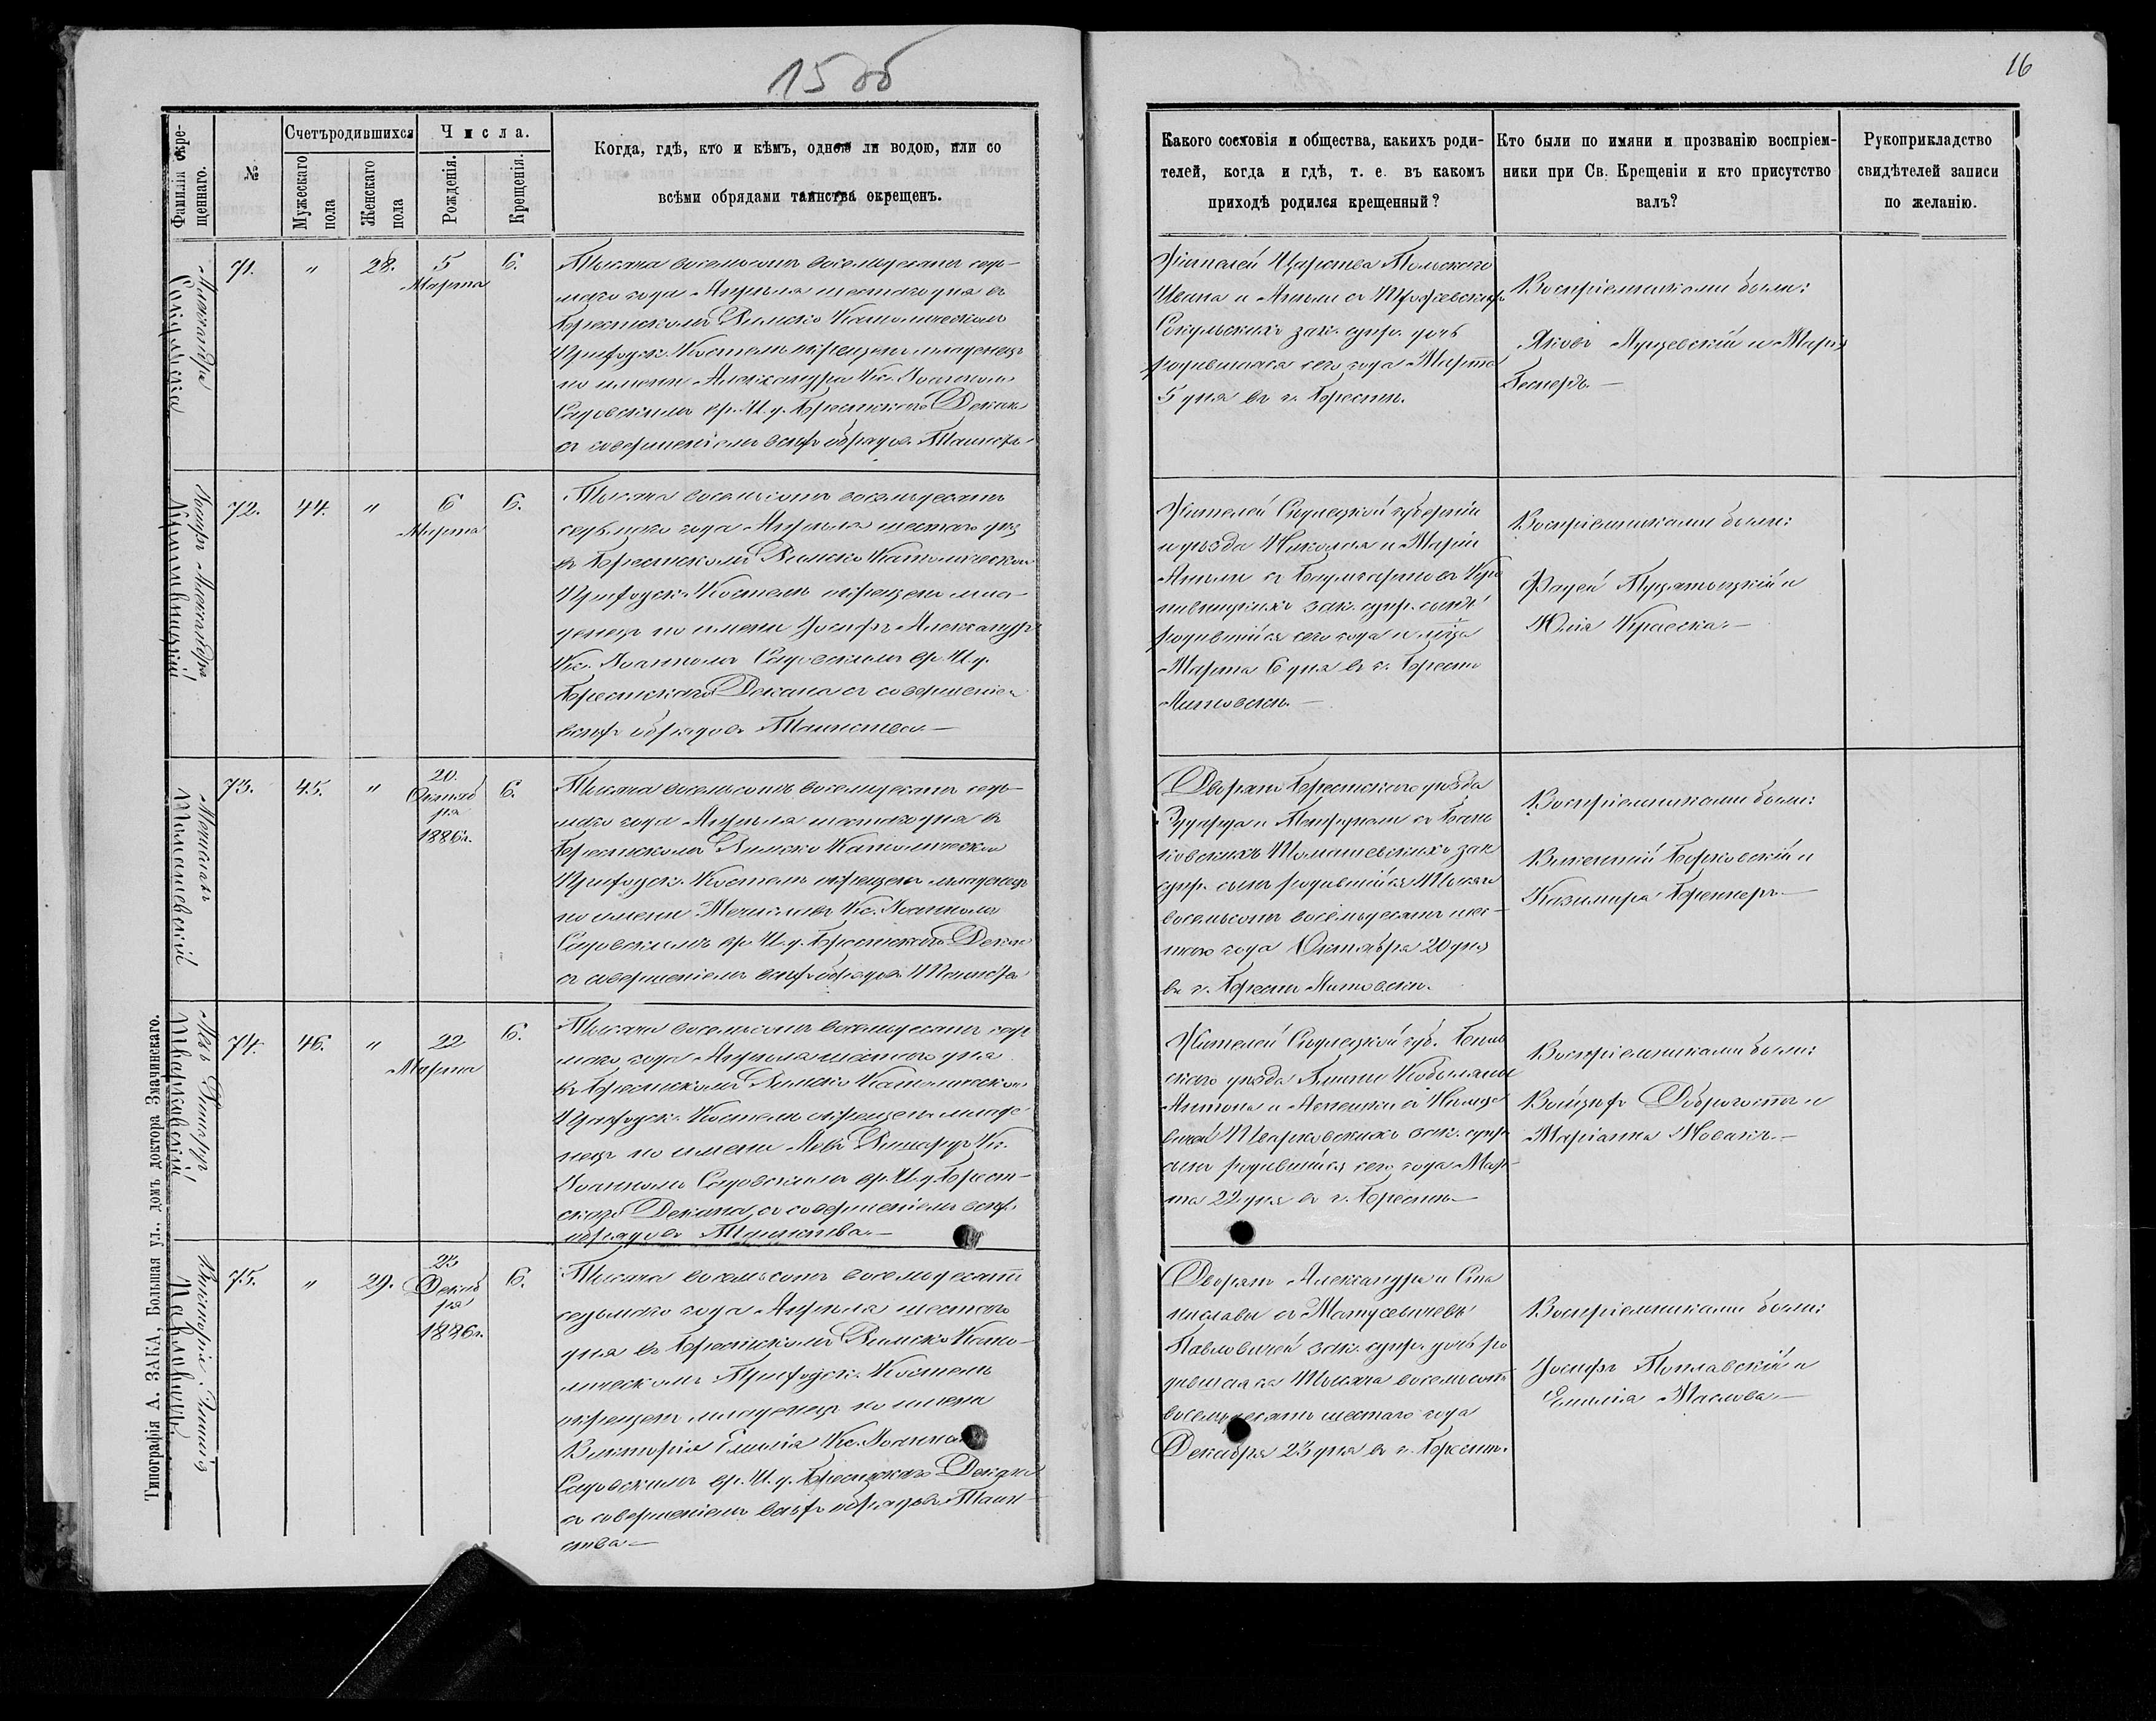 15 об
16
Фамилія окре-
щеннаго.
№
Счетъ родившихся
Мужескаго
пола
Женскаго
пола
Числа.
Рожденія.
Крещенія.
Когда, гдѣ, кто и кѣмъ, одною ли водою, или со
всѣми обрядами таинства окрещенъ.
Какого сословія и общества, какихъ роди-
телей, когда и гдѣ, т. е. въ какомъ
приходѣ родился крещенный?
Кто были по имяни и прозванію воспріем-
ники при Св. Крещеніи и кто присутство
валъ?
Рукоприкладство
свидѣтелей записи
по желанію.
Александра
71.
"
28.
5
Марта
6.
Тысяча восемьсотъ восемьдесятъ седь-
маго года Апрѣля шестаго дня въ
Брестскомъ Римско Католическомъ
Приходск. Костелѣ окрещенъ младенецъ
по имени Александра Кс. Іоанномъ
Садовскимъ вр. И. д. Брестскаго Декана
съ совершеніемъ всѣхъ обрядовъ Таинства
Жителей Царства Польскаго
Ивана и Анны съ
зак. супр. дочь
родившаяся сего года Марта
5 дня въ г. Брестѣ.
Воспріемниками были:
Яковъ и Марія
Іосифъ Александръ
72.
44.
"
6
Марта
6.
Тысяча восемьсотъ восемьдесятъ
седьмаго года Апрѣля шестаго дня
въ Брестскомъ Римско Католическомъ
Приходск. Костелѣ окрещенъ мла-
денецъ по имени Іосифъ Александръ
Кс. Іоанномъ Садовскимъ вр. И. д.
Брестскаго Декана съ совершеніемъ
всѣхъ обрядовъ Таинства.—
Жителей Сѣдлецкой губерніи
и уѣзда Николая и Маріи
Анны съ
зак. супр. сынъ
родившійся сего года и мѣсца
Марта 6 дня въ г. Брестѣ
Литовскѣ.—
Воспріемниками были:
и
Юлія
Мечиславъ
Томашевскій
73.
45.
"
20.
Октяб
ря
1886 г.
6.
Тысяча восемьсотъ восемьдесятъ седь-
маго года Апрѣля шестаго дня въ
Брестскомъ Римско Католическомъ
Приходск. Костелѣ окрещенъ младенецъ
по имени Мечиславъ Кс. Іоанномъ
Садовскимъ вр. И. д. Брестскаго Декана
съ совершеніемъ всѣхъ обрядовъ Таинства
Дворянъ Брестскаго уѣзда
съ
Томашевскихъ зак.
супр. сынъ родившійся Тысяча
восемьсотъ восемьдесятъ шес-
таго года Октября 20 дня
въ г. Брестѣ Литовскѣ.
Воспріемниками были:
Викентій Борковскій и
Казимира
Левъ Рихардъ
74.
46.
"
22
Марта
6.
Тысяча восемьсотъ восемьдесятъ седь
маго года Апрѣля шестаго дня
въ Брестскомъ Римско Католическомъ
Приходск. Костелѣ окрещенъ младе-
нецъ по имени Левъ Рихардъ Кс.
Іоанномъ Садовскимъ вр. И. д. Брест-
скаго Декана, съ совершеніемъ всѣхъ
обрядовъ Таинства.—
Жителей Сѣдлецкой губ.
скаго уѣзда Гмины Кобыляны
Антона и съ
зак. супр.
сынъ родившійся сего года Мар-
та 22 дня въ г. Брестѣ.—
Воспріемниками были:
Войцехъ и
Маріанна Новакъ.—
Викторія Эмилія
Павловичъ
75.
"
29.
23
Декаб
ря
1886 г.
6.
Тысяча восемьсотъ восемьдесятъ
седьмаго года Апрѣля шестаго
дня въ Брестскомъ Римско Като-
лическомъ Приходск. Костелѣ
окрещенъ младенецъ по имени
Викторія Емилія Кс. Іоанномъ
Садовскимъ вр. И. д. Брестскаго Декана
съ совершеніемъ всѣхъ обрядовъ Таин-
ства.—
Дворянъ Александра и Ста
ниславы съ Матусевичевъ
Павловичей зак. супр. дочь ро
дившаяся Тысяча восемьсотъ
восемьдесятъ шестаго года
Декабря 23 дня въ г. Брестѣ.
Воспріемниками были:
Іосифъ Поплавскій и
Емилія Маслова.—
Типографія А. ЗАКА, Большая ул., домъ доктора Значинскаго.